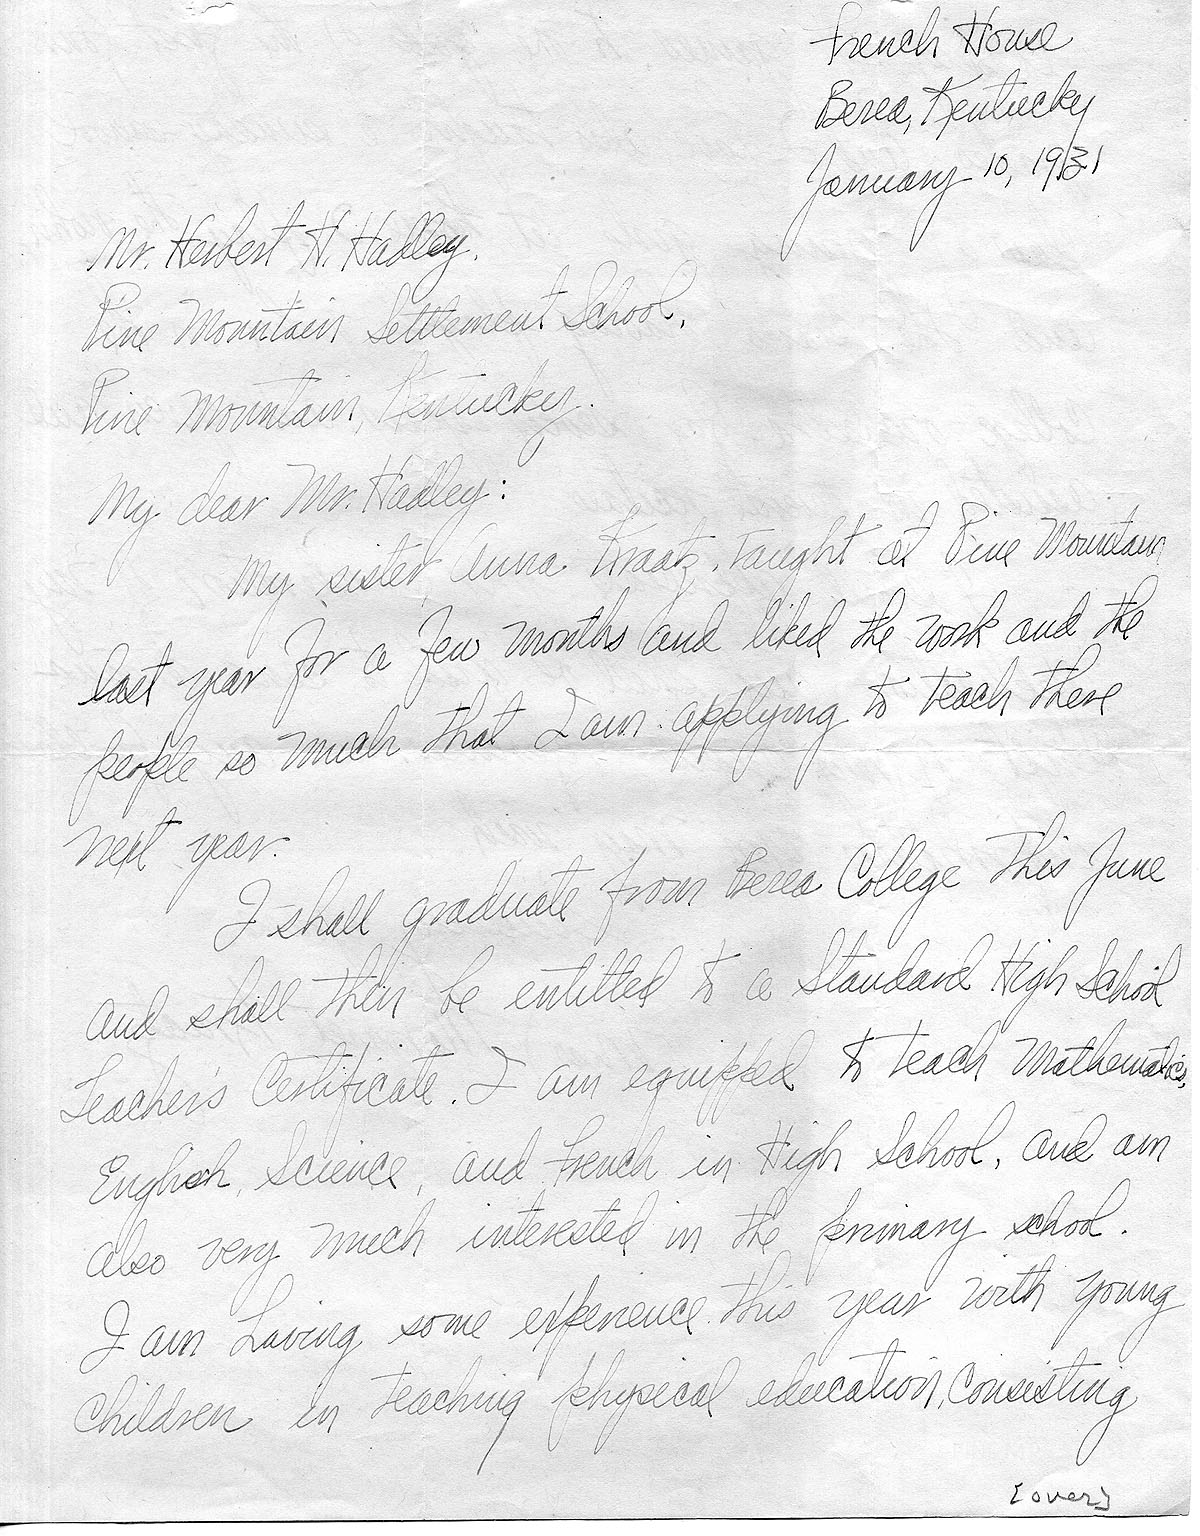 French House
Berea, Kentucky
January 10, 1931
Mr. Herbert H. Hadley.
Pine Mountain Settlement School,
Pine Mountain, Kentucky.
My dear Mr. Hadley:
My sister, Anna Kraatz, taught at Pine Mountain
last year for a few months and liked the work and the
people so much that I am applying to teach there
next year.
I shall graduate from Berea College this June
and shall then be entitled to a Standard High School
Teacher's Certificate. I am equipped to teach Mathematics,
English, Science, and French in High School, and am
also very much interested in the primary school.
I am having some experience this year with young
children in teaching physical education, consisting
[over]